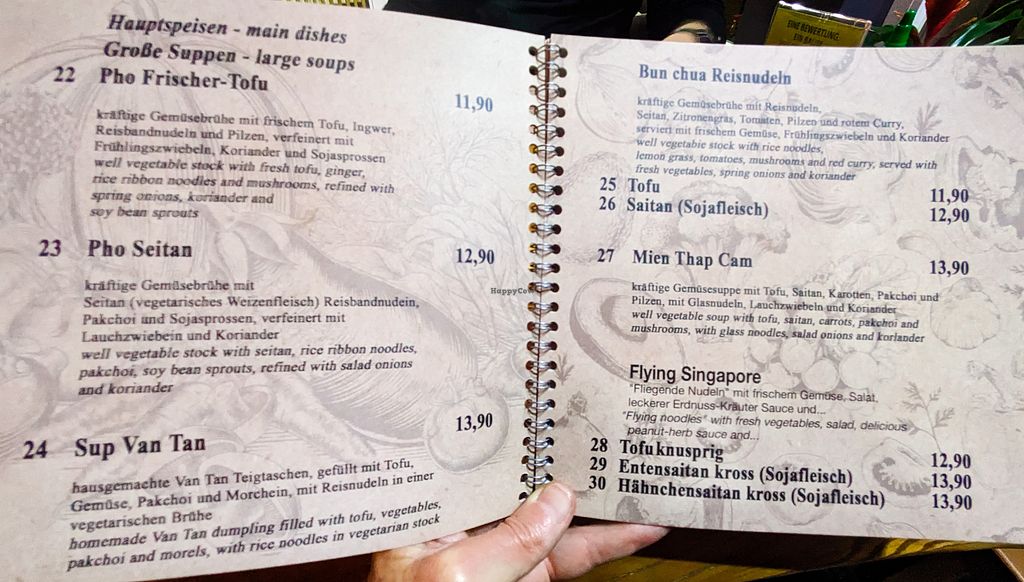 Hauptspeisen - main dishes
Große Suppen - large soups
22 Pho Frischer-Tofu
11,90
kräftige Gemüsebrühe mit frischem Tofu, Ingwer,
Reisbandnudeln und Pilzen, verfeinert mit
Frühlingszwiebeln, Koriander und Sojasprossen
well vegetable stock with fresh tofu, ginger,
rice ribbon noodles and mushrooms, refined with
spring onions, koriander and
soy bean sprouts
23 Pho Seitan 12,90
kräftige Gemüsebrühe mit
Seitan (vegetarisches Weizenfleisch) Reisbandnudeln,
Pakchoi und Sojasprossen, verfeinert mit
Lauchzwiebeln und Koriander
well vegetable stock with seitan, rice ribbon noodles,
pakchoi, soy bean sprouts, refined with salad onions
and koriander
24 Sup Van Tan 13,90
hausgemachte Van Tan Teigtaschen, gefüllt mit Tofu,
Gemüse, Pakchoi und Morcheln, mit Reisnudeln in einer
vegetarischen Brühe
homemade Van Tan dumpling filled with tofu, vegetables,
pakchoi and morels, with rice noodles in vegetarian stock
HappyCow
EINE BEWERTUNG,
Bun chua Reisnudeln
kräftige Gemüsebrühe mit Reisnudeln,
Seitan, Zitronengras, Tomaten, Pilzen und rotem Curry,
serviert mit frischem Gemüse, Frühlingszwiebeln und Koriander
well vegetable stock with rice noodles,
lemon grass, tomatoes, mushrooms and red curry, served with
fresh vegetables, spring onions and koriander
25 Tofu 11,90
26 Saitan (Sojafleisch) 12,90
27 Mien Thap Cam 13,90
kräftige Gemüsesuppe mit Tofu, Saitan, Karotten, Pakchoi und
Pilzen, mit Glasnudeln, Lauchzwiebeln und Koriander
well vegetable soup with tofu, saitan, carrots, pakchoi and
mushrooms, with glass noodles, salad onions and koriander
Flying Singapore
"Fliegende Nudeln" mit frischem Gemüse, Salat,
leckerer Erdnuss-Kräuter Sauce und...
"Flying noodles" with fresh vegetables, salad, delicious
peanut-herb sauce and...
28 Tofuknusprig 12,90
29 Entensaitan kross (Sojafleisch) 13,90
30 Hähnchensaitan kross (Sojafleisch) 13,90